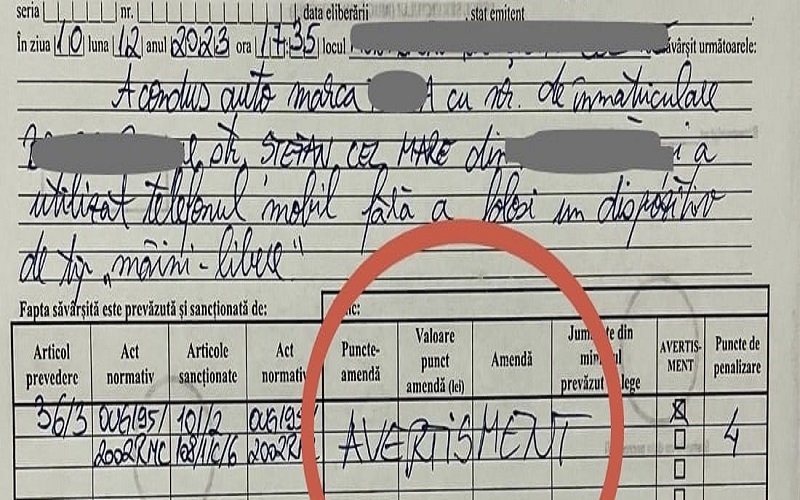 seria nr. data eliberării , stat emitent
În ziua 10 luna 12 anul 2023 ora 17:35 locul săvârșit următoarele:
A condus auto marca A cu nr. de înmatriculare
str. STEFAN CEL MARE din și a
utilizat telefonul mobil fără a folosi un dispozitiv
de tip „mâini-libere"
Fapta săvârșită este prevăzută și sancționată de: nc:
Articol prevedere Act normativ Articole sancționate Act normativ Puncte-amendă Valoare punct amendă (lei) Amendă din prevăzut lege AVERTIS-MENT Puncte de penalizare
36/3 OUG195/ 101/2 OUG195/ AVERTISMENT X 4
2002RNC 108/1/C/6 2002RNC